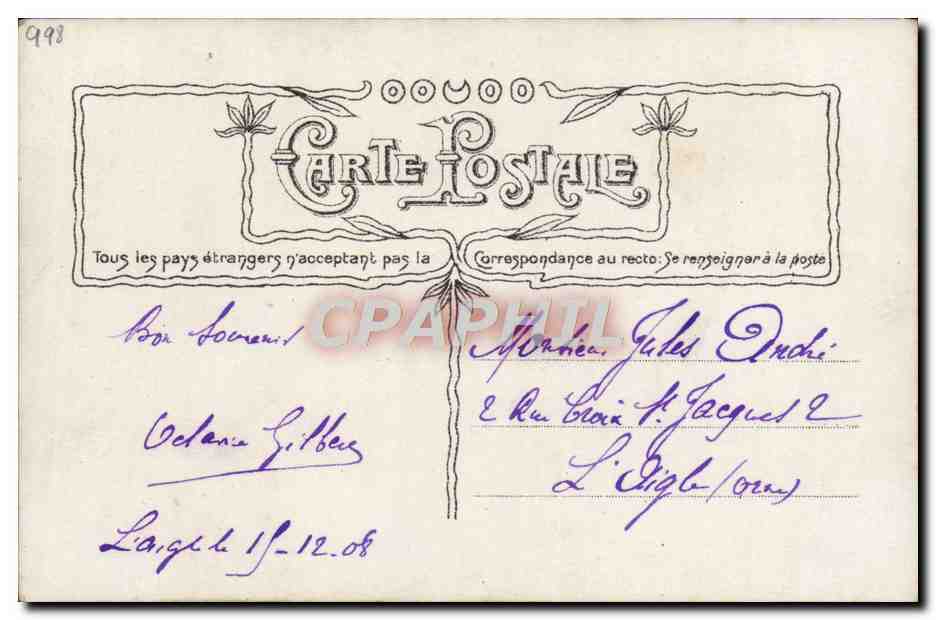 998
CARTE POSTALE
Tous les pays étrangers n'acceptant pas la Correspondance au recto: Se renseigner à la poste
CPAPHIL
Bon Souvenir
Monsieur Jules André
2 Rue Croix St. Jacques 2
L'Aigle (orne)
Gilbert
L'aigle le 15-12-08